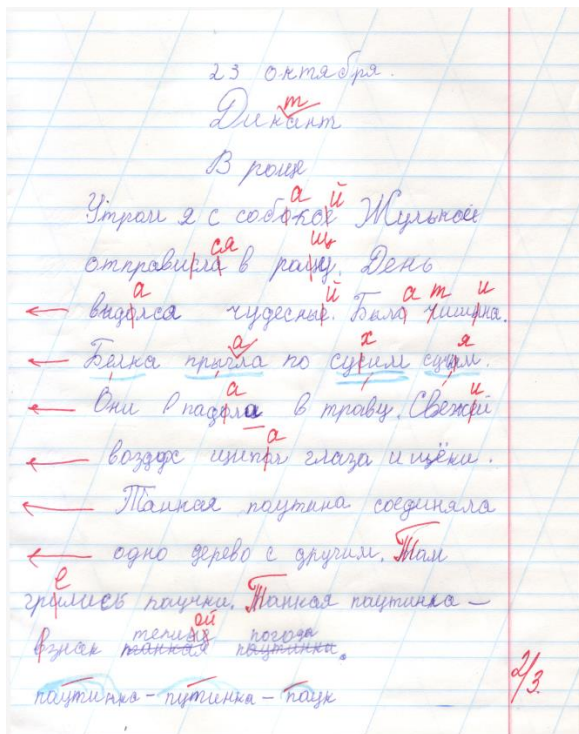 23 октября.
Динант
В роще
Утром я с собокой Жулькой
отправилла в рошу. День
выдолса чудесный. Было чишина.
Белка прыгла по суким сучим.
Они впадола в траву. Свежий
воздох щипоь глаза и щёки.
Танкая паутина соединяла
одно дерево с другим. Там
грились паучки. Танкая паутинка –
взнак теплый погода
танкая паутинки.
паутинка – путинка – паук
2/3.